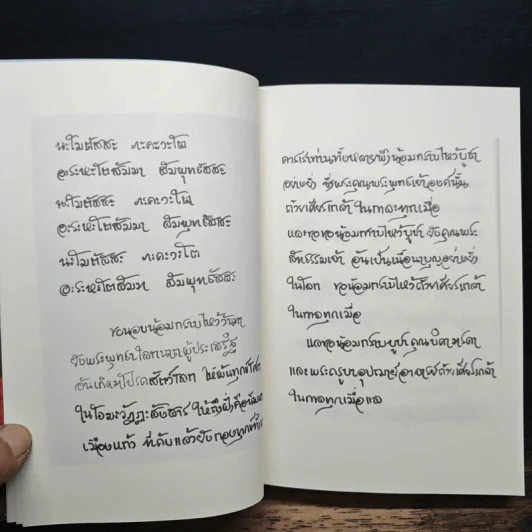 นะโมตัสสะ ภะคะวะโต
อะระหะโตสัมมา สัมพุทธัสสะ
นะโมตัสสะ ภะคะวะโต
อะระหะโตสัมมา สัมพุทธัสสะ
นะโมตัสสะ ภะคะวะโต
อะระหะโตสัมมา สัมพุทธัสสะ
ขอนอบน้อมกราบไหว้วันทา
ยังพระพุทธาโลกนาถาผู้ประเสริฐ
อันเกิดมาโปรดสัตว์โลก ให้พ้นทุกข์โศก
ในโอฆะวัฏฏะสงสาร ให้ถึงฝั่งคือ
เมืองแก้ว ที่ดับแล้วยังกองทุกข์
ควรเราท่านทั้งหลายพึงน้อมกราบไหว้บูชา
อย่างยิ่ง ซึ่งพระคุณพระพุทธเจ้าองค์นั้น
ด้วยเศียรเกล้า ในกาลทุกเมื่อ
และขอน้อมกราบไหว้บูชา ยังคุณพระ
สัทธรรมเจ้า อันเป็นเนื้อนาบุญอย่างยิ่ง
ในโลก ขอน้อมกราบไหว้ด้วยเศียรเกล้า
ในกาลทุกเมื่อ
แลขอน้อมกราบบูชา คุณบิดามารดา
และพระครูบาอุปัชฌาย์อาจารย์ด้วยเศียรเกล้า
ในกาลทุกเมื่อแล